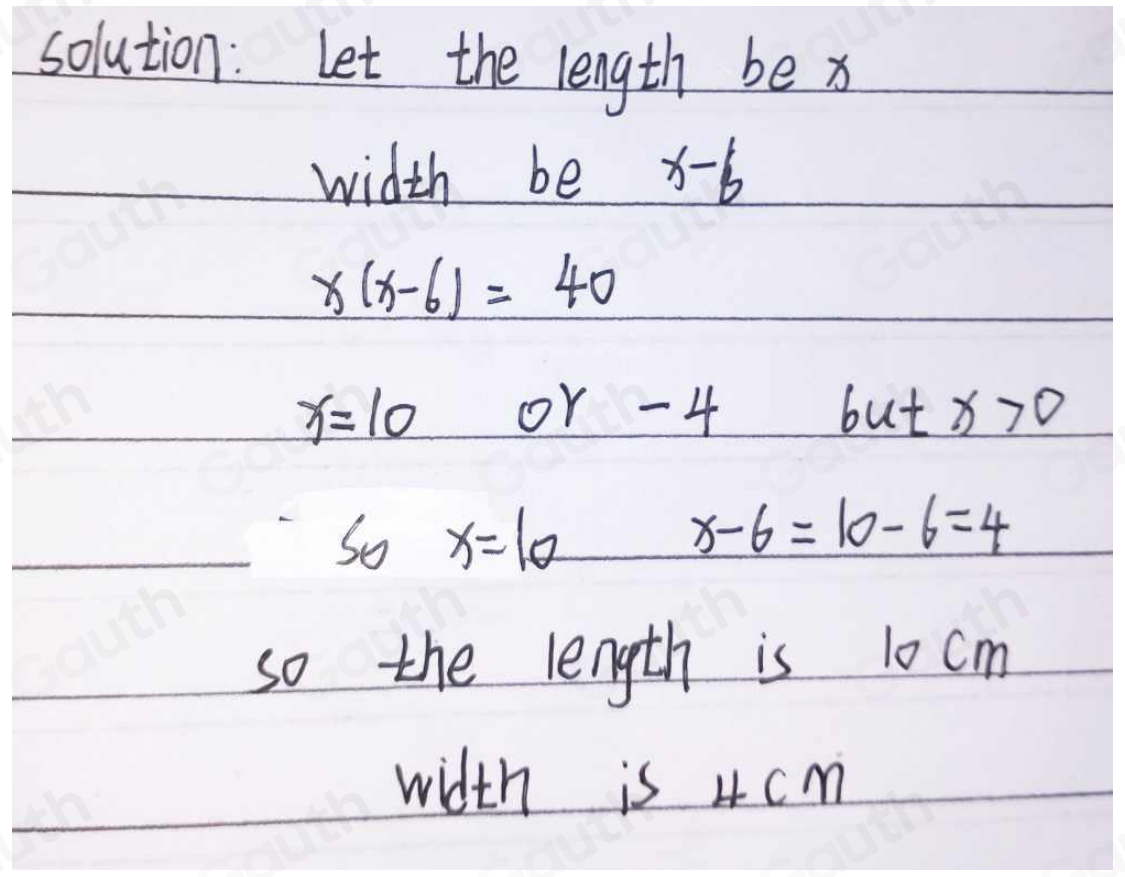 solution: Let the length be x
width be x-6
x(x-6) = 40
x=10 or -4 but x>0
so x=10 x-6=10-6=4
so the length is 10 cm
width is 4 cm